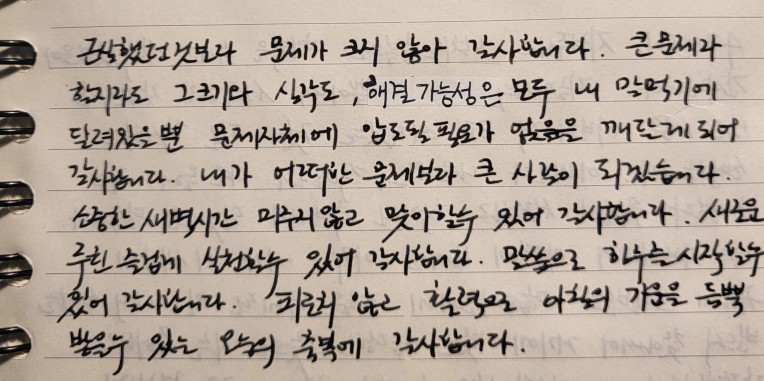 근심했던것보다 문제가 크지 않아 감사합니다. 큰 문제라
할지라도 그 크기와 심각도, 해결가능성은 모두 내 맘먹기에
달려있을 뿐 문제자체에 압도될 필요가 없음을 깨닫게 되어
감사합니다. 내가 어떠한 문제보다 큰 사람이 되겠습니다.
소중한 새벽시간 미루지 않고 맞이할수 있어 감사합니다. 새로운
루틴 즐겁게 실천할수 있어 감사합니다. 말씀으로 하루를 시작할수
있어 감사합니다. 피로치 않고 활력으로 아침의 기운을 듬뿍
받을수 있는 오늘의 축복에 감사합니다.